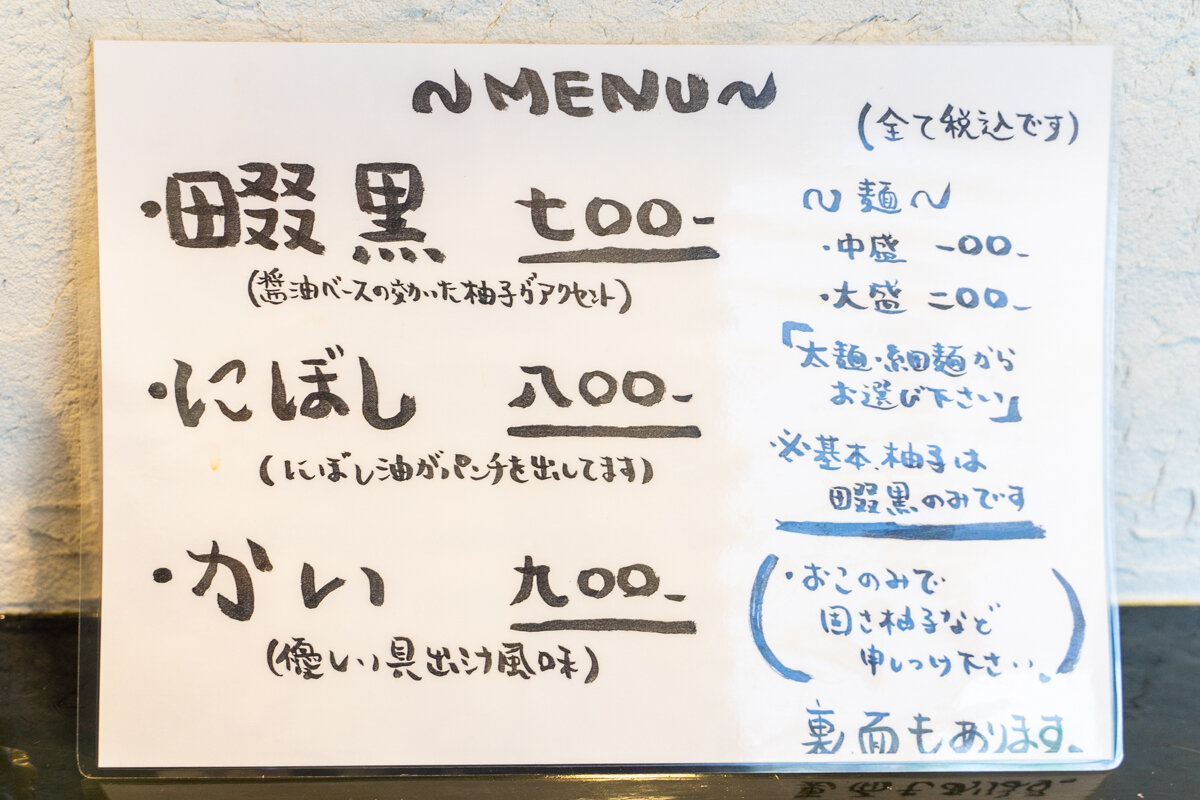 ～MENU～
(全て税込です)
・畷黒 七〇〇-
(醤油ベースの効いた柚子がアクセント)
・にぼし 八〇〇-
(にぼし油がパンチを出してます)
・かい 九〇〇-
(優しい貝出汁風味)
～麺～
・中盛 一〇〇-
・大盛 二〇〇-
「太麺・細麺から
お選び下さい」
※基本、柚子は
畷黒のみです
(・おこのみで
固さ柚子など
申しつけ下さい。)
裏面もあります。